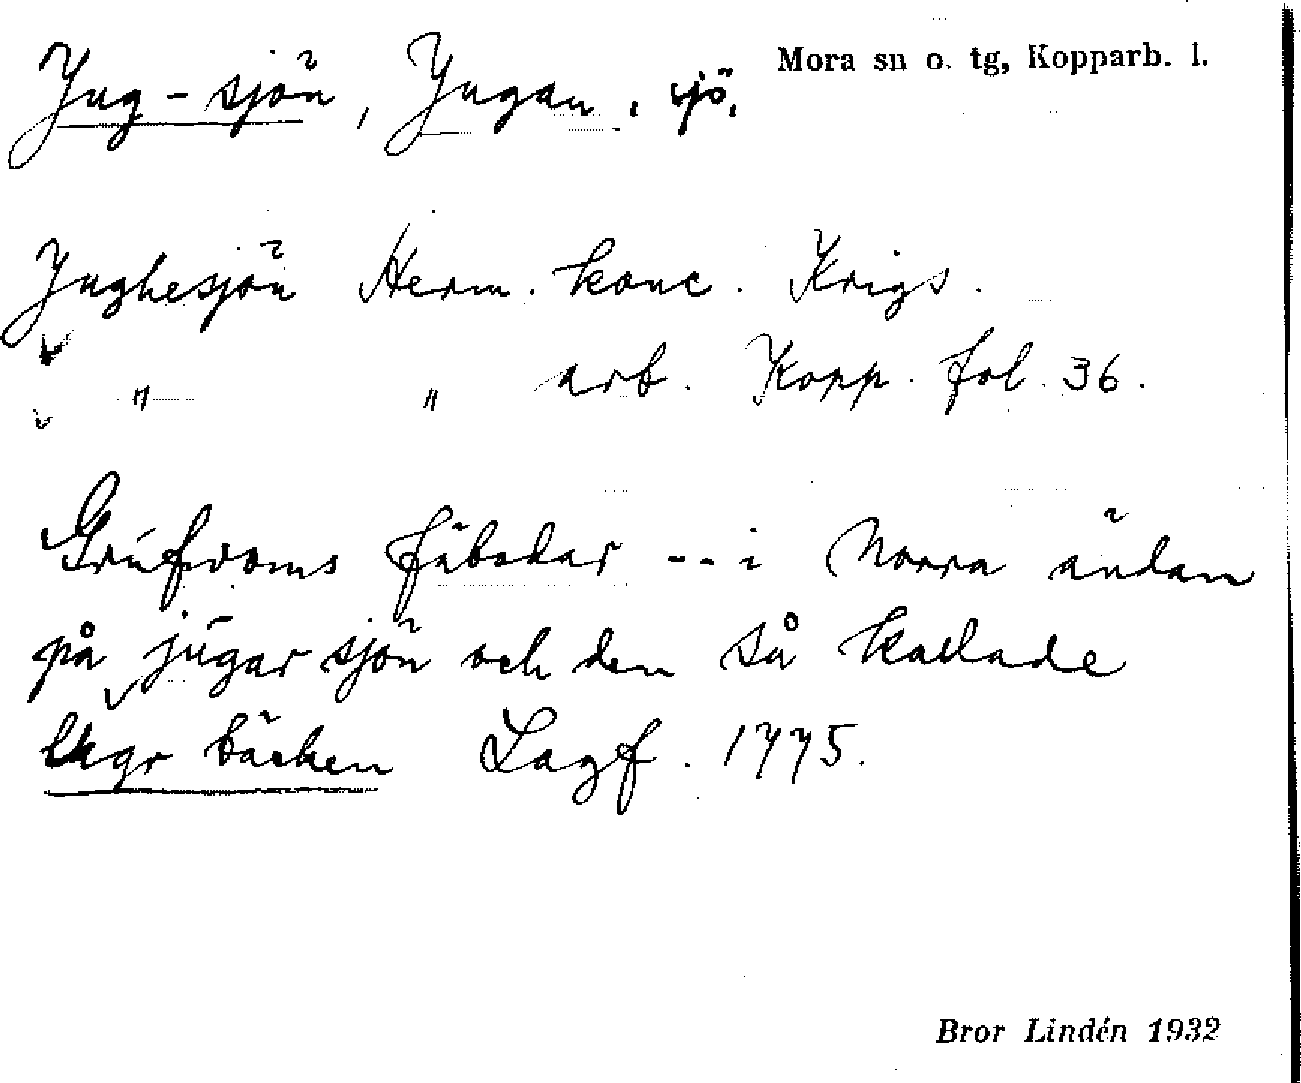 Jug-sjön, Jugan, sjö. Mora sn o. tg, Kopparb. l.
Jughesjön Herm. konc. Krigs.
" " arb. Kopp. fol. 36.
Grufvoms fäbodar -- i Norra ändan
på jugar sjön och den så kallade
bäcken Lagf. 1775.
Bror Lindén 1932